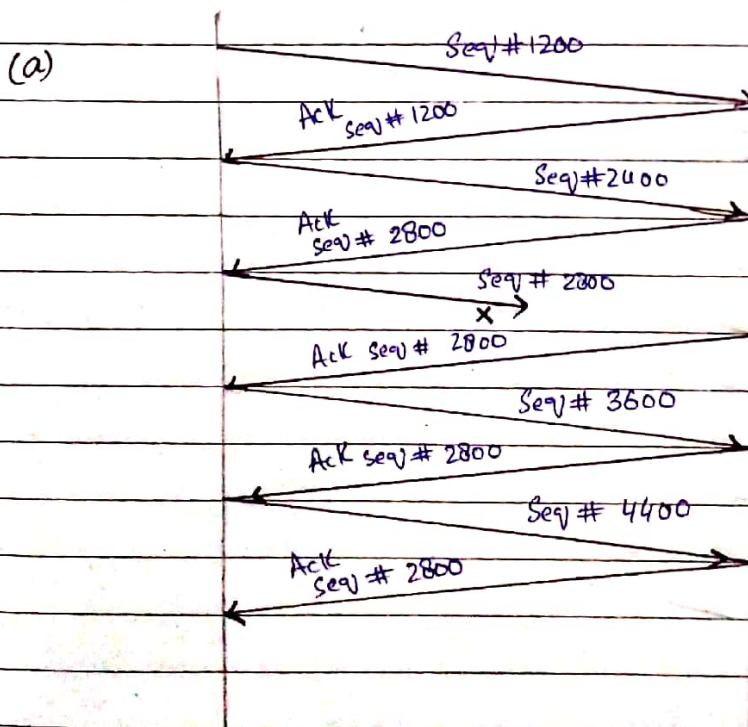 (a)
Seq # 1200
Ack
seq # 1200
Seq # 2400
Ack
seq # 2800
Seq # 2800
x
Ack seq # 2800
Seq # 3600
Ack seq # 2800
Seq # 4400
Ack
seq # 2800